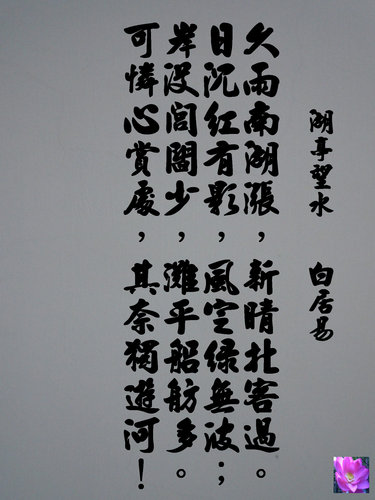 湖亭望水 白居易
久雨南湖漲,新晴北客過。
日沉紅有影,風定綠無波;
岸没閭閻少,灘平船舫多。
可憐心賞處,其奈獨遊河!